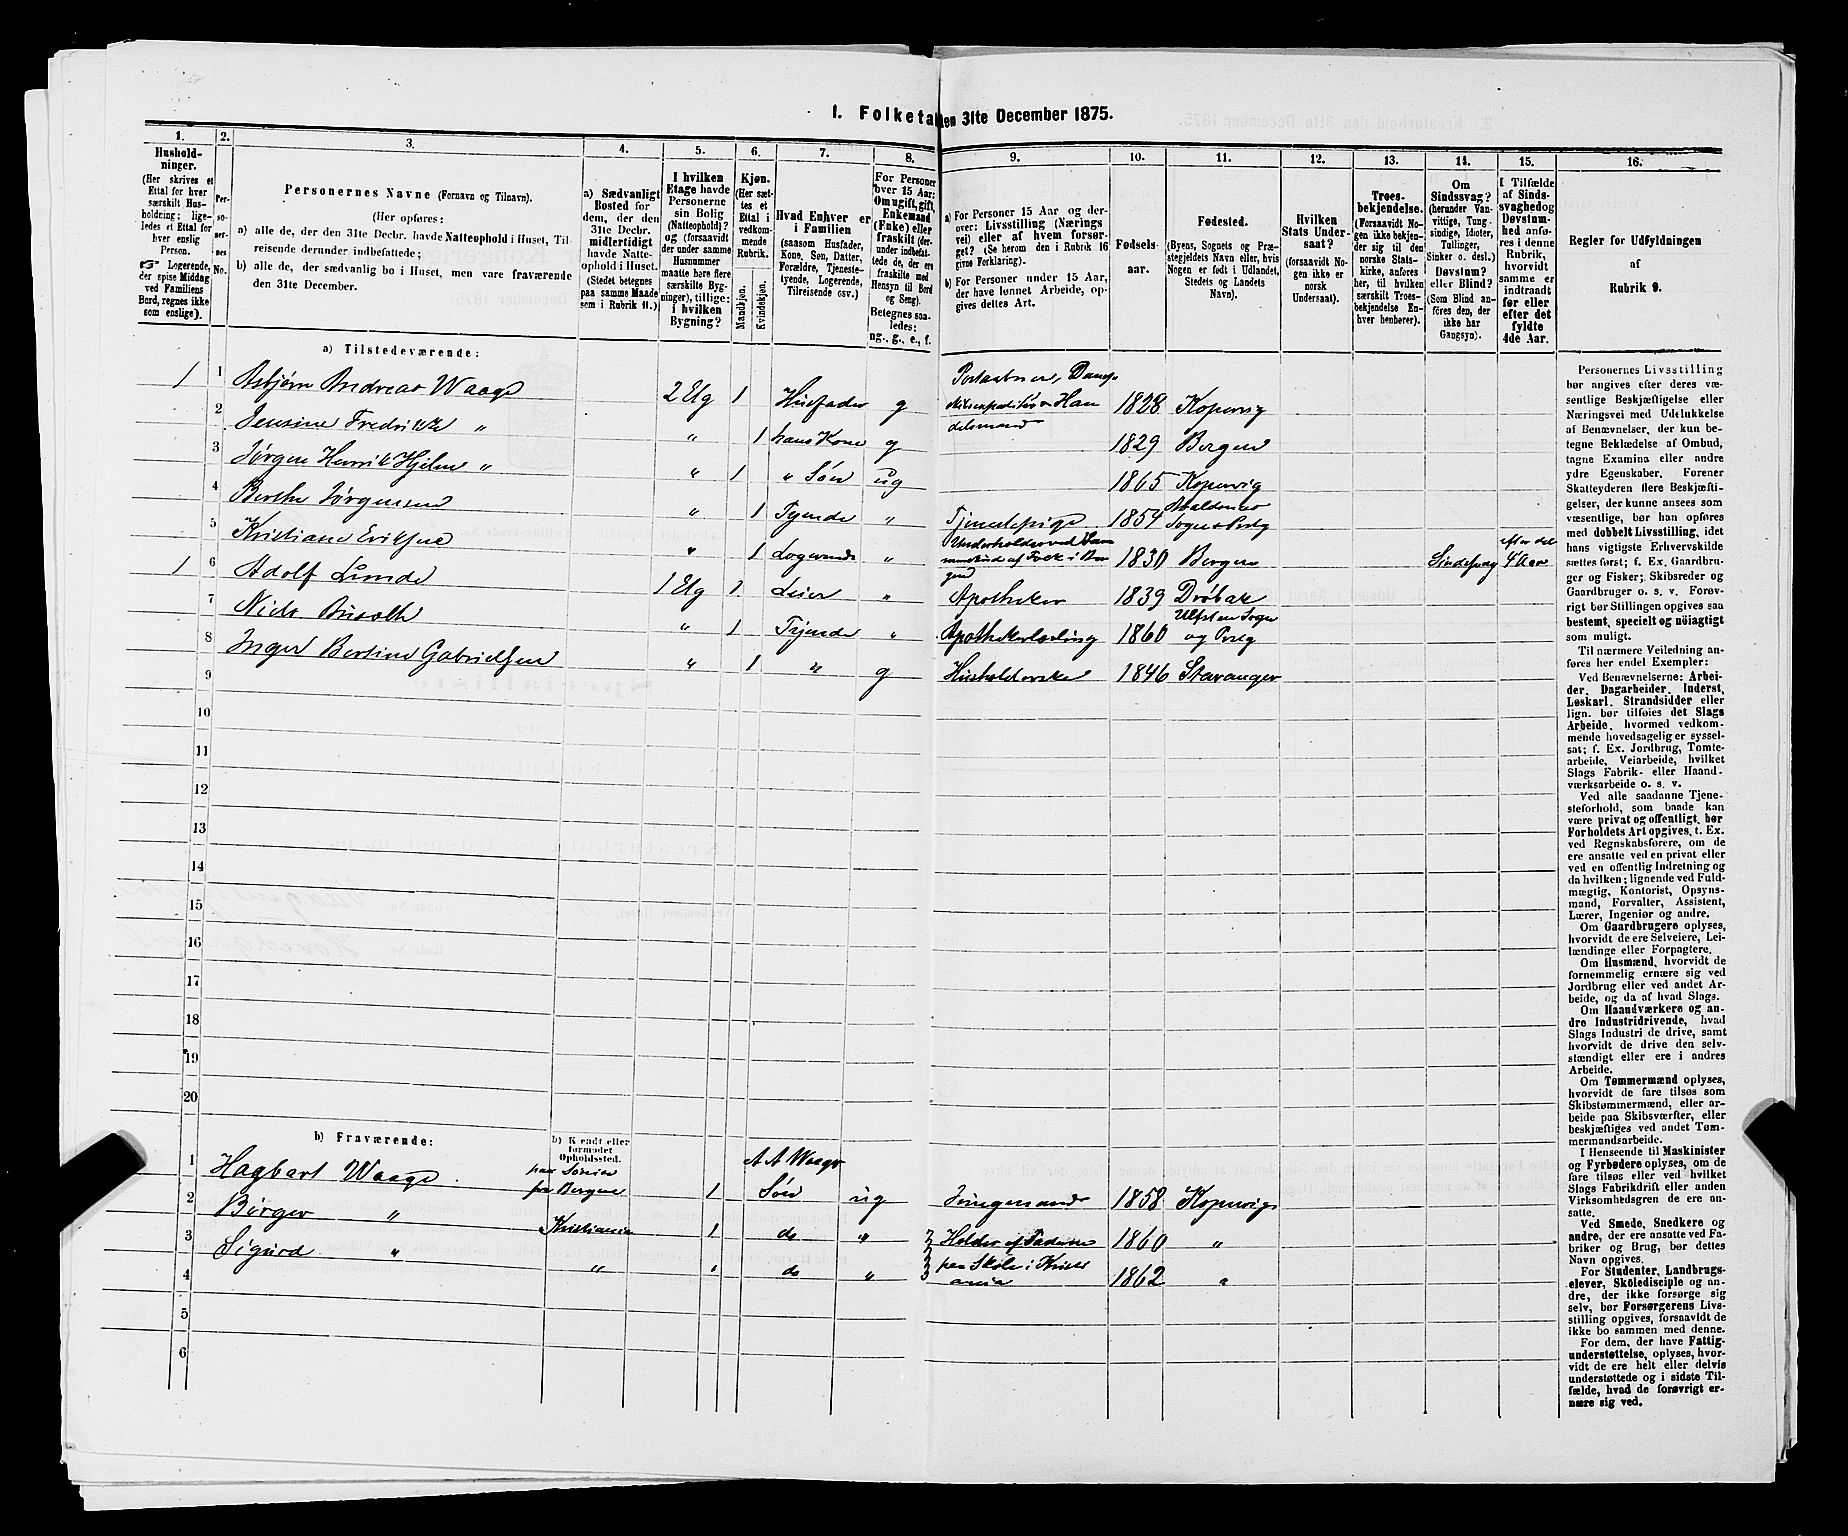 1. Folketa
den 31te December 1875.
1.
2.
3.
4.
5.
6.
7.
8.
9.
10.
11.
12.
13.
14.
15.
16.
Hushold-
ninger.
(Her skrives et
Ettal for hver
særskilt Hus-
holdning; lige-
ledes et Ettal for
hver enslig
Person.
☞ Logerende,
der spise Middag
ved Familiens
Bord, regnes ikke
som enslige).
Per-
so-
ner-
nes
No.
Personernes Navne (Fornavn og Tilnavn).
(Her opføres:
a) alle de, der den 31te Decbr. havde Natteophold i Huset, Til-
reisende derunder indbefattede;
b) alle de, der sædvanlig bo i Huset, men vare fraværende
den 31te December.
a) Sædvanligt
Bosted for
dem, der den
31te Decbr.
midlertidigt
havde Natte-
ophold i Huset.
(Stedet betegnes
paa samme Maade
som i Rubrik 11.)
I hvilken
Etage havde
Personerne
sin Bolig
(Natteophold)?
og (forsaavidt
der under samme
Husnummer
maatte høre flere
særskilte Byg-
ninger), tillige:
i hvilken
Bygning?
Kjøn.
(Her sæt-
tes et
Ettal i
vedkom-
mende
Rubrik.
Mandkjøn.
Kvindekjøn.
Hvad Enhver er
i Familien
(saasom Husfader,
Kone, Søn, Datter,
Forældre, Tjeneste-
tyende, Logerende,
Tilreisende osv.)
For Personer
over 15 Aar:
Om ugift, gift,
Enkemand
(Enke) eller
fraskilt (der-
under indbefat-
tede de, der ere
fraskilte med
Hensyn til Bord
og Seng).
Betegnes saa-
ledes:
ug., g., e., f.
a) For Personer 15 Aar og der-
over: Livsstilling (Nærings
vei) eller af hvem forsør-
get? (Se herom den i Rubrik 16
givne Forklaring).
b) For Personer under 15 Aar,
der have lønnet Arbeide, op-
gives dettes Art.
Fødsels-
aar.
Fødested.
(Byens, Sognets og Præ-
stegjeldets Navn eller, hvis
Nogen er født i Udlandet,
Stedets og Landets
Navn).
Hvilken
Stats Under-
saat?
(forsaavidt No-
gen ikke er
norsk
Undersaat).
Troes-
bekjendelse.
(Forsaavidt No-
gen ikke bekjen-
der sig til den
norske Stats-
kirke, anføres
her, til hvilken
særskilt Troes-
bekjendelse En-
hver henhører).
Om
Sindssvag?
(herunder Van-
vittige, Tung-
sindige, Idioter,
Tullinger,
Sinker o. desl.)
Døvstum?
eller Blind?
(Som Blind an-
føres den, der
ikke har
Gangsyn).
I Tilfælde
af Sinds-
svaghed og
Døvstum-
hed anfø-
res i denne
Rubrik,
hvorvidt
samme er
indtraadt
før eller
efter det
fyldte
4de Aar.
Regler for Udfyldningen
af
Rubrik 9.
a) Tilstedeværende:
1 1 Asbjørn Andreas Waage 2 Etg 1 Husfader g Postaabner, Damp- skibsexpeditør & Han delsmand 1828 Kopervig
2 Jensine Fredrikke " " 1 hans Kone g 1829 Bergen
3 Jørgen Henrik Hjelm " " 1 " Søn ug 1865 Kopervig
4 Berthe Jørgensen " 1 Tjende " Tjenestepige 1854 Avaldsnes Sogn & Pstg
5 Kristiane Eriksen " 1 Logerende " 1830 Bergen Sindssvag efter det 4 Aar
1 6 Adolf Lunde 1 Etg 1 Leier " Apotheker 1839 Drøbak
7 Niels " 1 Tjende " Apothekerlærling 1860 Sogn og Prstg
8 Inger Bertine Gabrielsen " 1 " g Husholderske 1846 Stavanger
9
10
11
12
13
14
15
16
17
18
19
20
b) Fraværende:
b) Kjendt eller
formodet
Opholdssted.
1 Hagbart Waage paa Søreise fra Bergen 1 A A Waages Søn ug Jungmand 1858 Kopervig
2 Børger " Kristiania 1 do " Holdes af Faderen 1860 "
3 Sigurd " " " do " paa Skole i Kristi ania 1862 "
4
5
6
Personernes Livsstilling
bør angives efter deres væ-
sentlige Beskjæftigelse eller
Næringsvei med Udelukkelse
af Benævnelser, der kun be-
tegne Beklædelse af Ombud,
tagne Examina eller andre
ydre Egenskaber. Forener
Skatteyderen flere Beskjæfti-
gelser, der kunne ansees som
væsentlige, bør han opføres
med dobbelt Livsstilling, idet
hans vigtigste Erhvervskilde
sættes først; f. Ex. Gaardbru-
ger og Fisker; Skibsreder og
Gaardbruger o. s. v. Forøv-
rigt bør Stillingen opgives saa
bestemt, specielt og nøiagtigt
som muligt.
Til nærmere Veiledning an-
føres her endel Exempler:
Ved Benævnelserne: Arbei-
der, Dagarbeider, Inderst,
Løskarl, Strandsidder eller
lign. bør tilføies det Slags
Arbeide, hvormed vedkom-
mende hovedsagelig er syssel-
sat; f. Ex. Jordbrug, Tomte-
arbeide, Veiarbeide, hvilket
Slags Fabrik- eller Haand-
værksarbeide o. s. v.
Ved alle saadanne Tjene-
steforhold, som baade kan
være privat og offentligt, bør
Forholdets Art opgives, t. Ex.
ved Regnskabsførere, om de
ere ansatte ved en privat eller
ved en offentlig Indretning og
da hvilken; lignende ved Fuld-
mægtig, Kontorist, Opsyns-
mand, Forvalter, Assistent,
Lærer, Ingeniør og andre.
Om Gaardbrugere oplyses,
hvorvidt de ere Selveiere, Lei-
lændinge eller Forpagtere.
Om Husmænd, hvorvidt de
fornemmelig ernære sig ved
Jordbrug eller ved andet Ar-
beide, og da af hvad Slags.
Om Haandværkere og an-
dre Industridrivende, hvad
Slags Industri de drive, samt
hvorvidt de drive den selv-
stændigt eller ere i andres
Arbeide.
Om Tømmermænd oplyses,
hvorvidt de fare tilsøs som
Skibstømmermænd, eller ar-
beide paa Skibsværfter, eller
beskjæftiges ved andet Tøm-
mermandsarbeide.
I Henseende til Maskinister
og Fyrbødere oplyses, om de
fare tilsøs eller ved hvilket
Slags Fabrikdrift eller anden
Virksomhedsgren de ere an-
satte.
Ved Smede, Snedkere og
andre, der ere ansatte ved Fa-
briker og Brug, bør dettes
Navn opgives.
For Studenter, Landbrugs-
elever, Skoledisciple og an-
dre, der ikke forsørge sig
selv, bør Forsørgerens Livs-
stilling opgives, forsaavidt de
ikke bo sammen med denne.
For dem, der have Fattig-
understøttelse, oplyses, hvor-
vidt de ere helt eller delvis
understøttede og i sidste Til-
fælde, hvad de forøvrigt er-
nære sig ved.